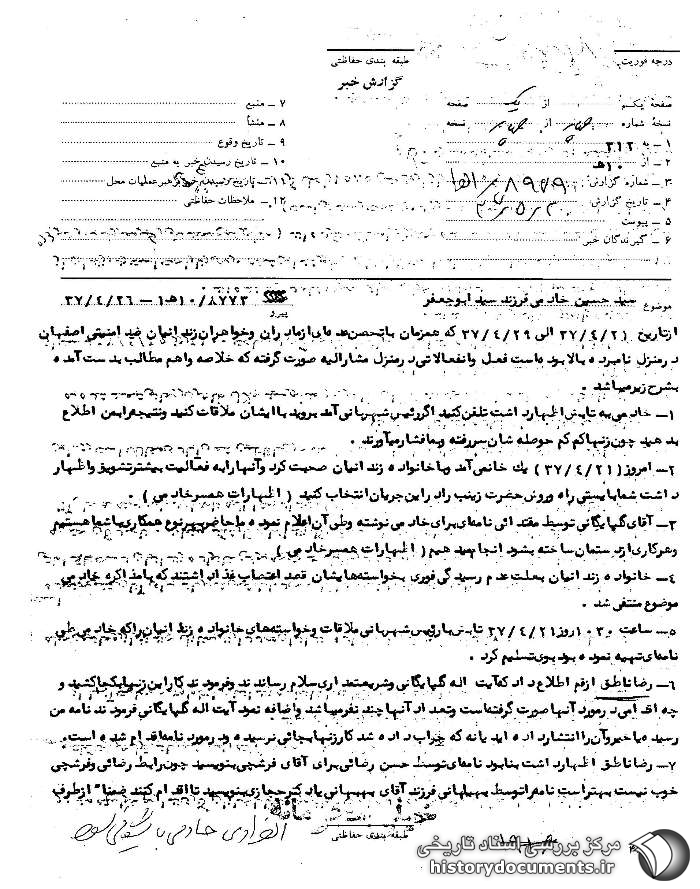 درجه فوریت
طبقه بندی حفاظتی
گزارش خبر
صفحه یکم از یک صفحه
نسخه شماره از نسخه
۱ – به ۳۱۲
۲ – از ۱۰ هـ
۳ – شماره گزارش
۴ – تاریخ گزارش
۵ – پیوست
۶ – گیرندگان خبر
۷ – منبع
۸ – منشأ
۹ – تاریخ وقوع
۱۰ – تاریخ رسیدن خبر به منبع
۱۱ – تاریخ رسیدن خبر به رهبر عملیات محل
۱۲ – ملاحظات حفاظتی
موضوع سید حسین خادمی فرزند سید ابوجعفر
پیرو ۱۰/۸۷۷۳هـ۱ – ۳۷/۴/۲۶
از تاریخ ۳۷/۴/۲۱ الی ۳۷/۴/۲۹ که همزمان با تحصن عده‌ای از مادران و خواهران زندانیان ضد امنیتی اصفهان
در منزل نامبرده بالا بوده است فعل و انفعالاتی در منزل مشارالیه صورت گرفته که خلاصه واهم مطالب بدست آمده
بشرح زیر میباشد .
۱– خادمی به تابش اظهار داشت تلفن کنید اگر رئیس شهربانی آمد بروید با ایشان ملاقات کنید و نتیجه را بمن اطلاع
بدهید چون زنها کم کم حوصله شان سررفته و بما فشار میآورند .
۲– امروز (۳۷/۴/۲۱) یک خانمی آمد و با خانواده زندانیان صحبت کرد و آنها را به فعالیت بیشتر تشویق و اظهار
داشت شما بایستی راه و روش حضرت زینب را در این جریان انتخاب کنید ( اظهارات همسر خادمی ) .
۳– آقای گلپایگانی توسط مقتدائی نامه‌ای برای خادمی نوشته و طی آن اعلام نموده ما حاضر بهر نوع همکاری با شما هستیم
و هر کاری از دستمان ساخته بشود انجام میدهیم ( اظهارات همسر خادمی )
۴– خانواده زندانیان بعلت عدم رسیدگی فوری بخواسته‌هایشان قصد اعتصاب غذا داشتند که با مذاکره خادمی
موضوع منتفی شد .
۵– ساعت ۱۰۳۰ روز ۳۷/۴/۲۱ تابش با رئیس شهربانی ملاقات و خواسته‌های خانواده زندانیان را که خادمی طی
نامه‌ای تهیه نموده بود بوی تسلیم کرد .
۶– رضا ناطق از قم اطلاع داد که آیت اله گلپایگانی و شریعتمداری سلام رساندند و فرمودند کار این زنها بکجا کشید و
چه اقدامی در مورد آنها صورت گرفته است و تعداد آنها چند نفر میباشد و اضافه نمود آیت اله گلپایگانی فرمودند نامه من
رسیده یا خیر و آن را انتشار داده اید یا نه که جواب داده شد کار زنها بجائی نرسیده و در مورد نامه اقدام شده است .
۷– رضا ناطق اظهار داشت بنا بود نامه‌ای توسط حسن رضائی برای آقای فرشچی بنویسید چون رابط رضائی و فرشچی
خوب نیست بهتر است نامه را توسط بهبهانی فرزند آقای بهبهانی یا دکتر حجازی بنویسید تا اقدام کنند ضمنا" از طرف
طبقه بندی حفاظتی
مرکز بررسی اسناد تاریخی
historydocuments.ir